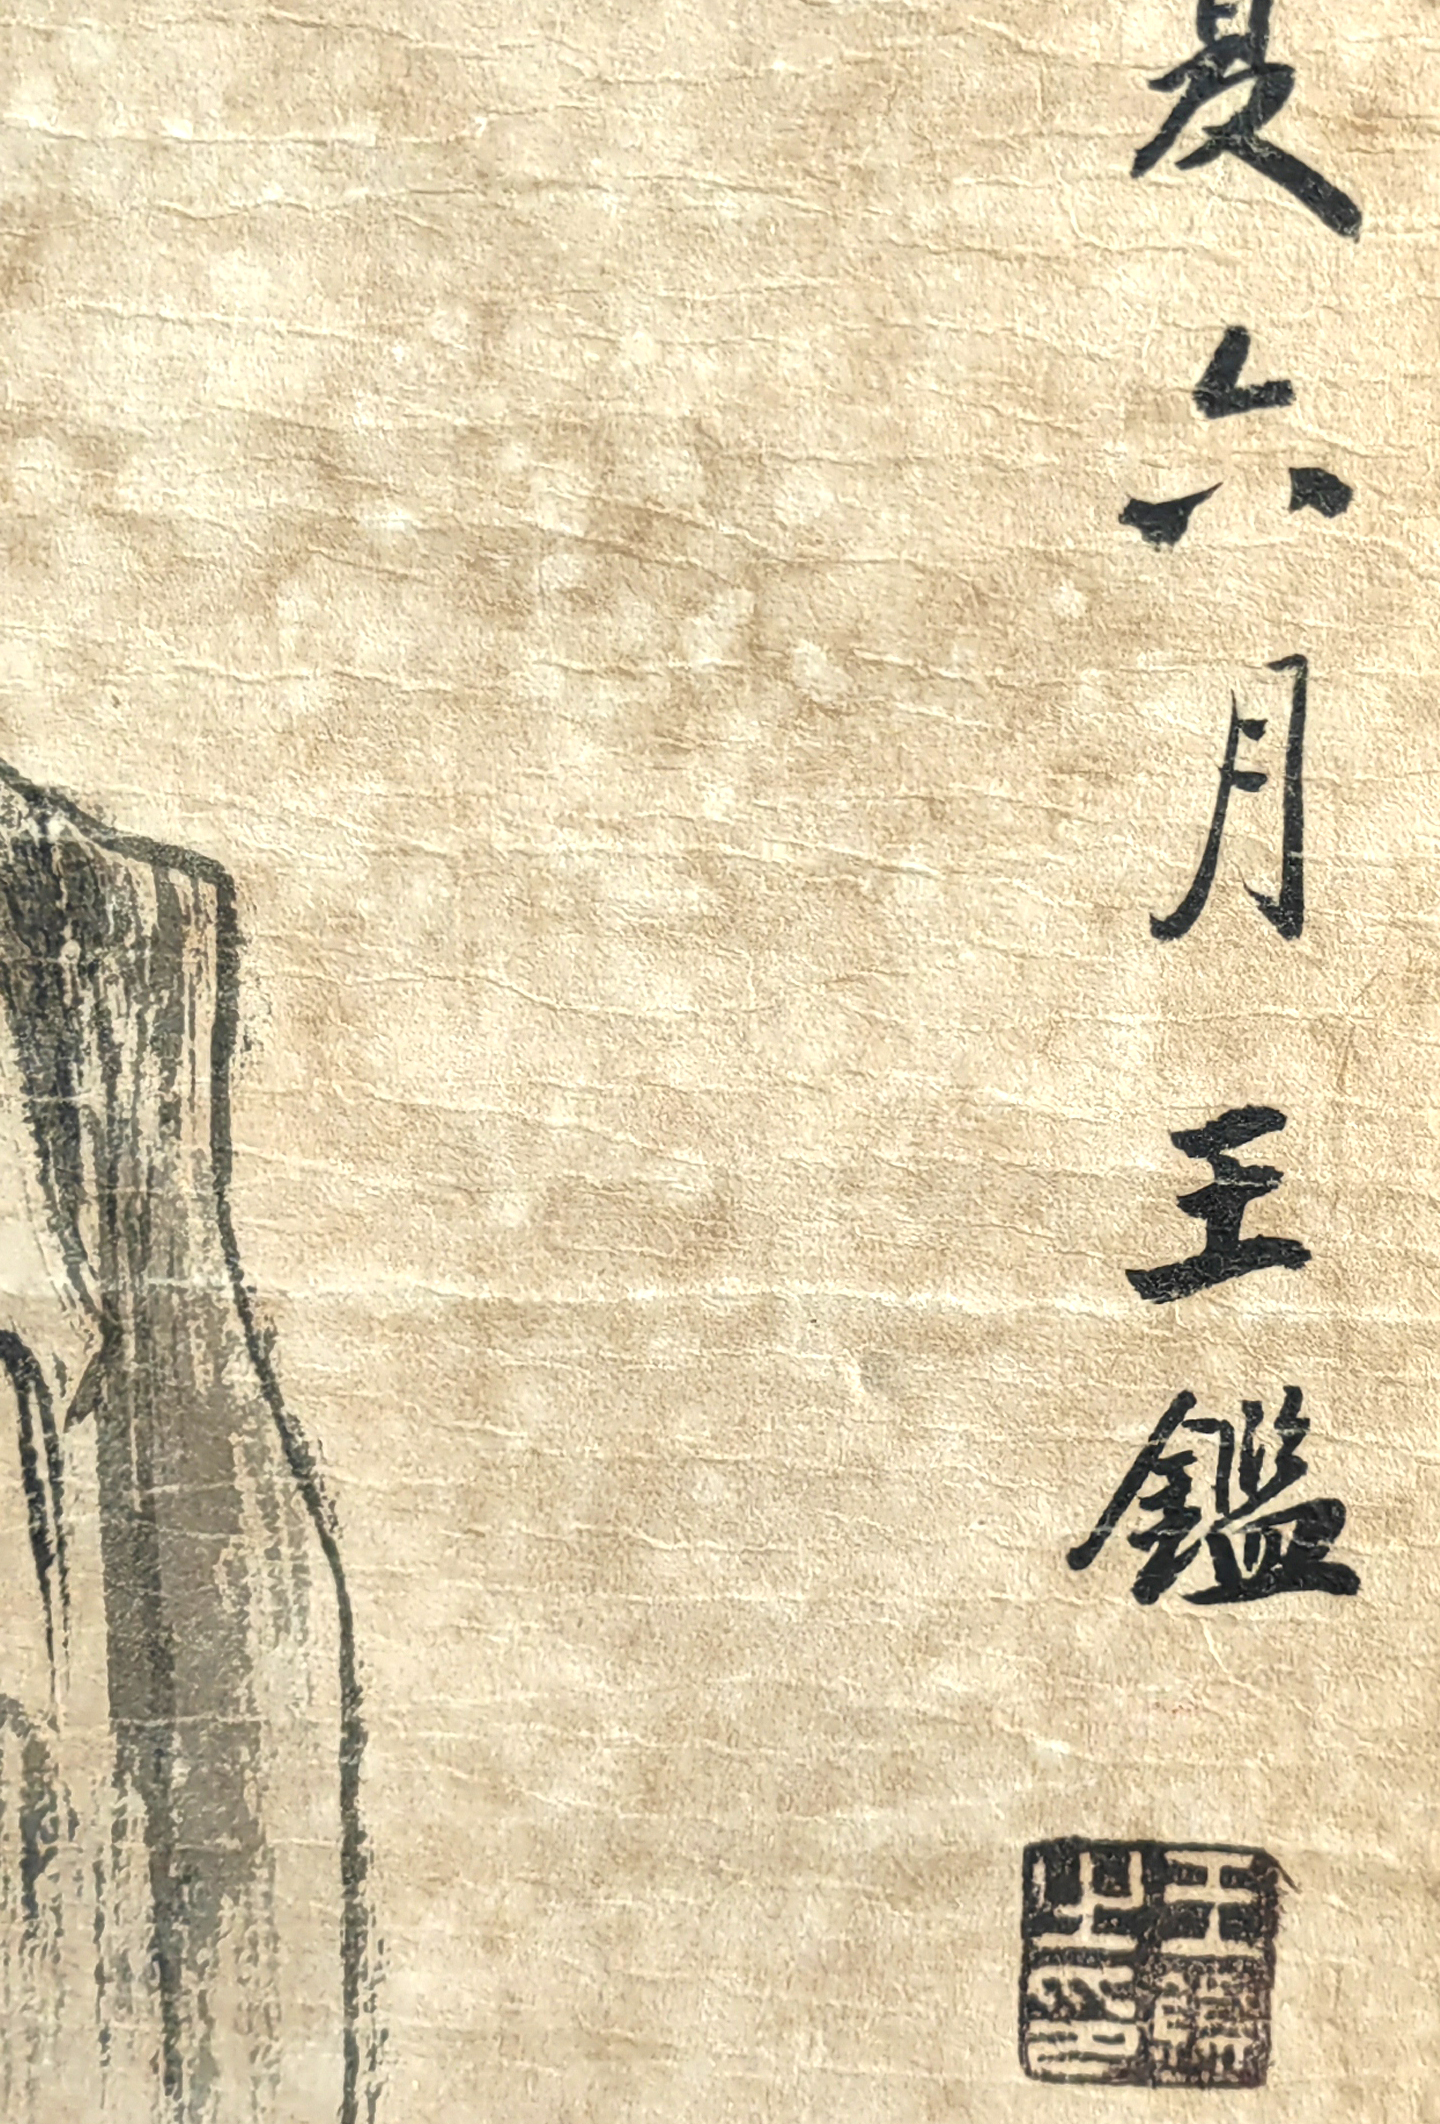 夏六月王鑑
王鑑
之印